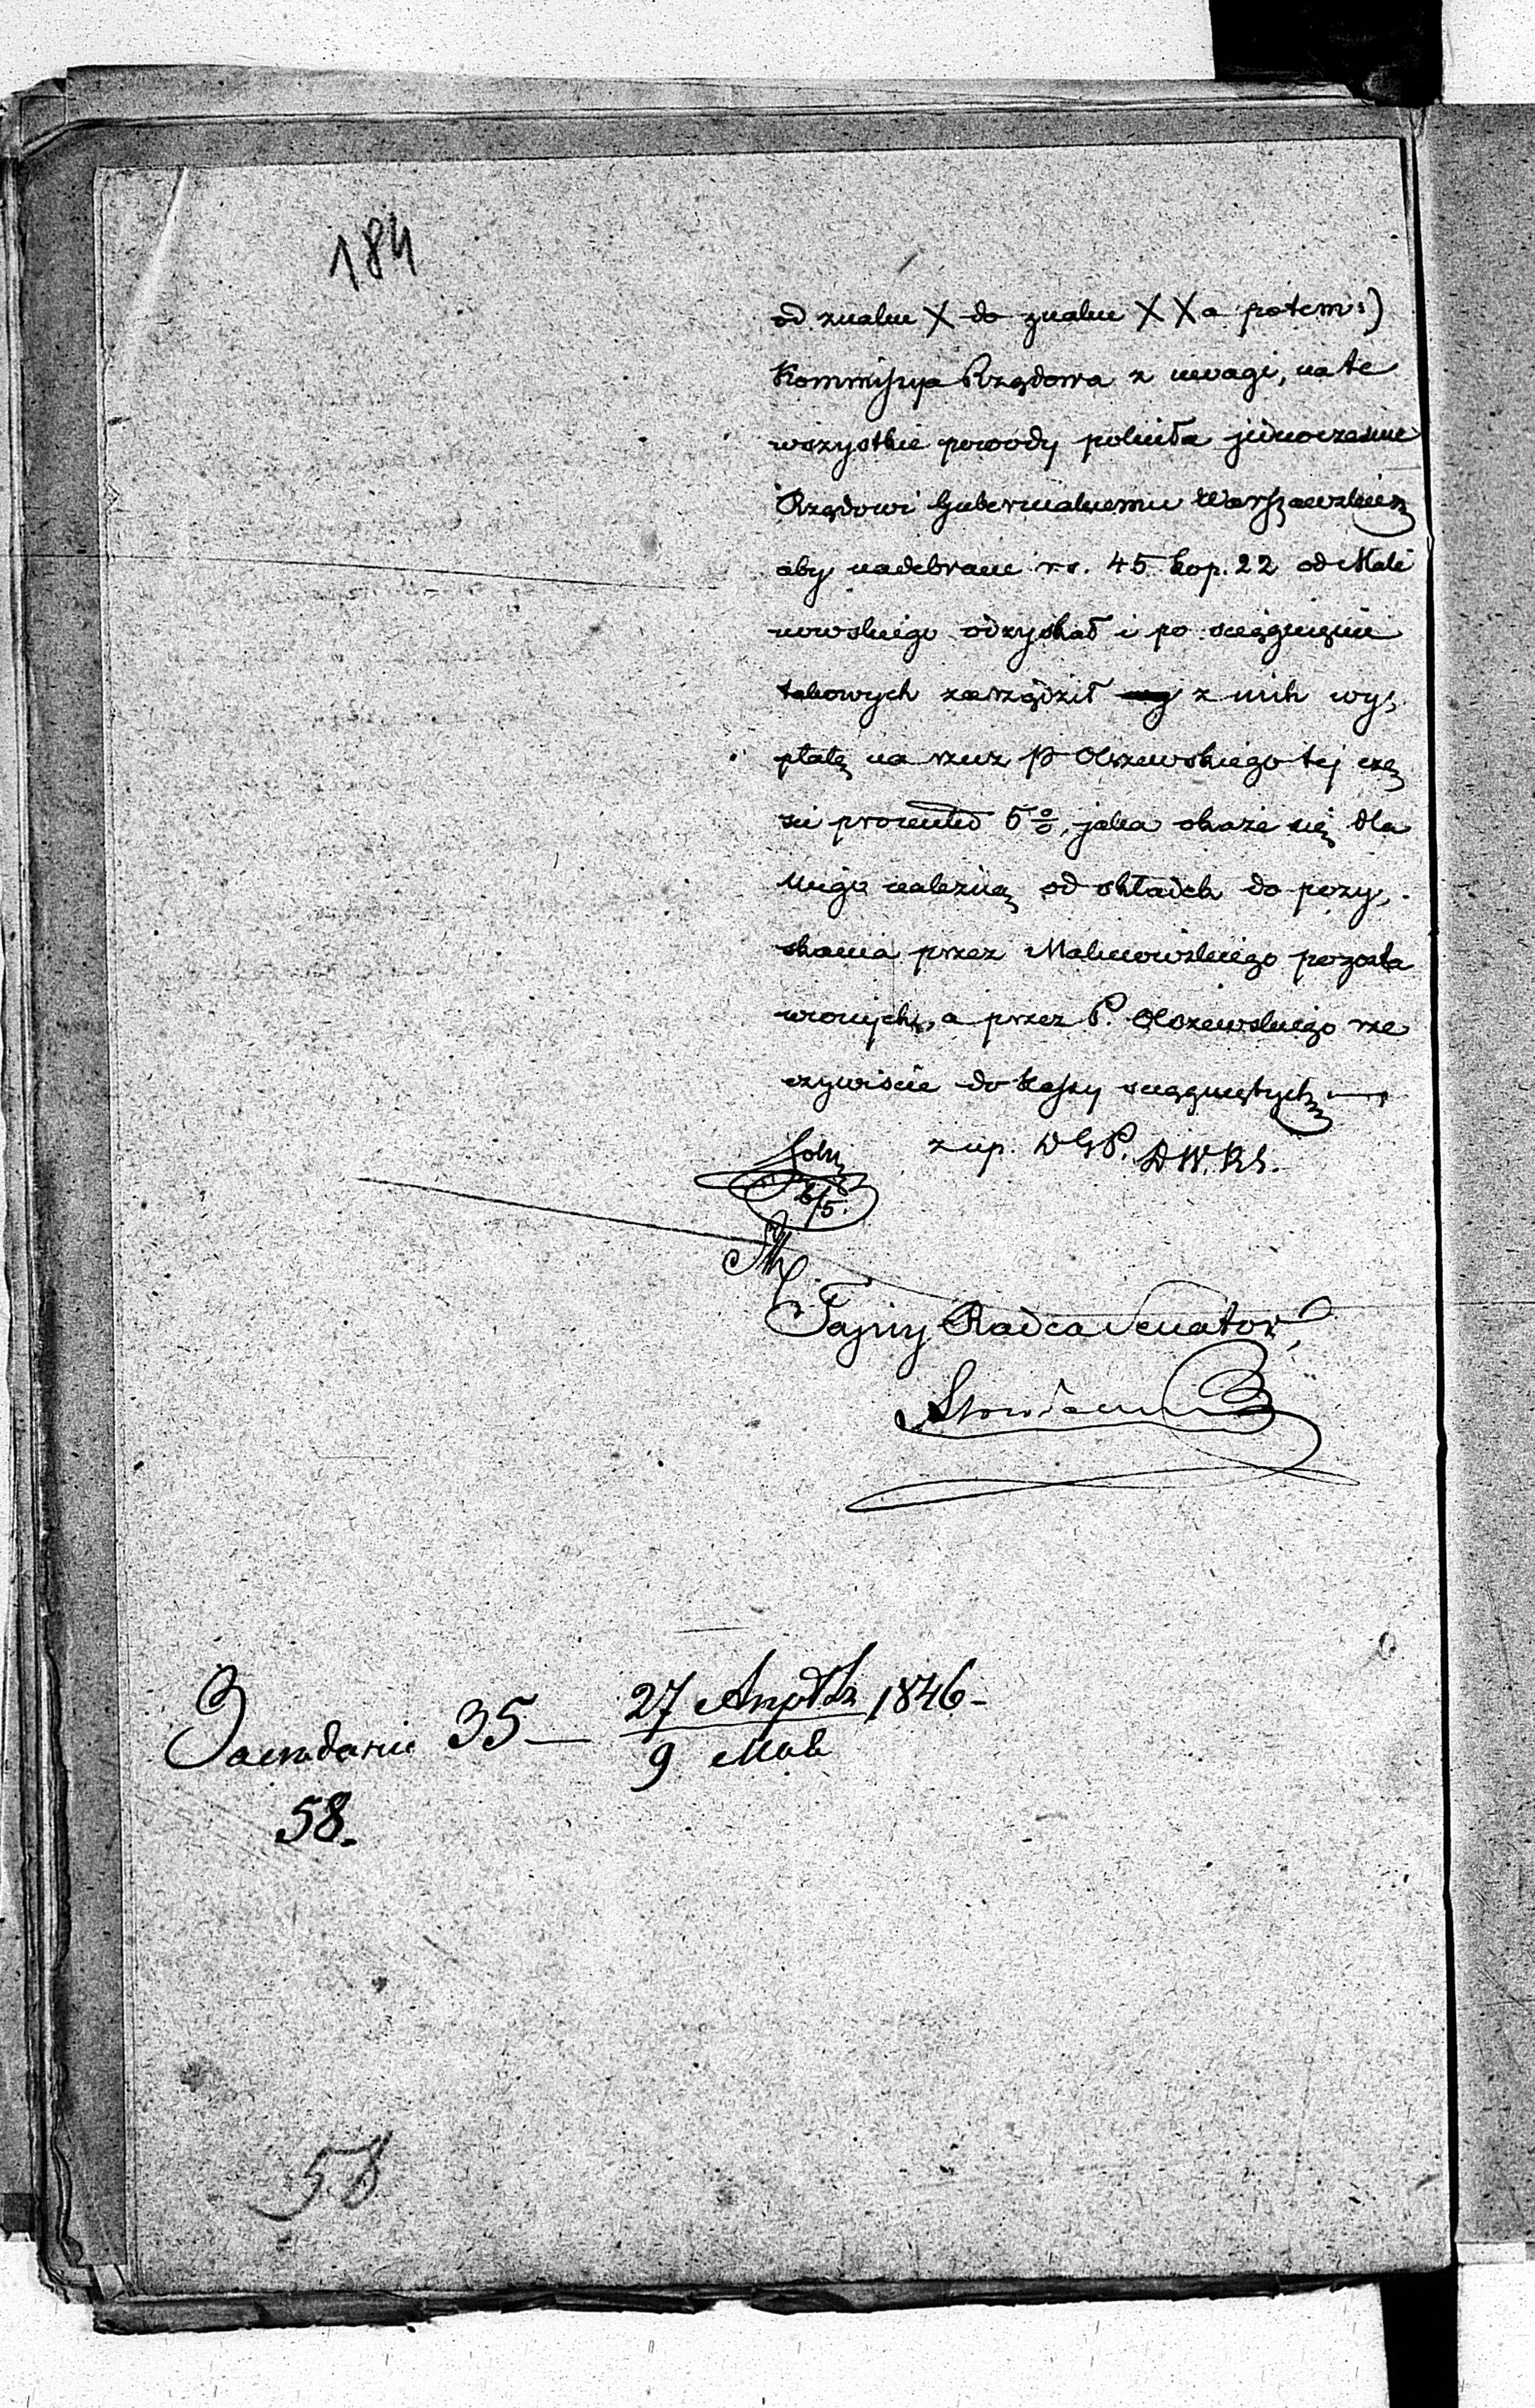 184
od znaku X do znaku X X a potem:)
Kommissya Rządowa z uwagi, na te
wszystkie powody poleciła jednocześnie
Rządowi Gubernialnemu Warszawskiem
aby nadebrane rs. 45 kop. 22 od Mali
nowskiego odzyskał i po ściągnięciu
takowych zarządził z nich wy,
płatę na rzecz P Olszewskiego tej czę
ści procentu 5 %, jaka okaże się dla
niego należną od składek do pozy,
skania przez Malinowskiego pozosta
wionych, a przez P. Olszewskiego rze
czywiście do kassy ściągniętych
z up. D G P. D W. K S.
6/5.
Tajny Radca Senator
35 — 27 1846 -
9 Maja
58.
58